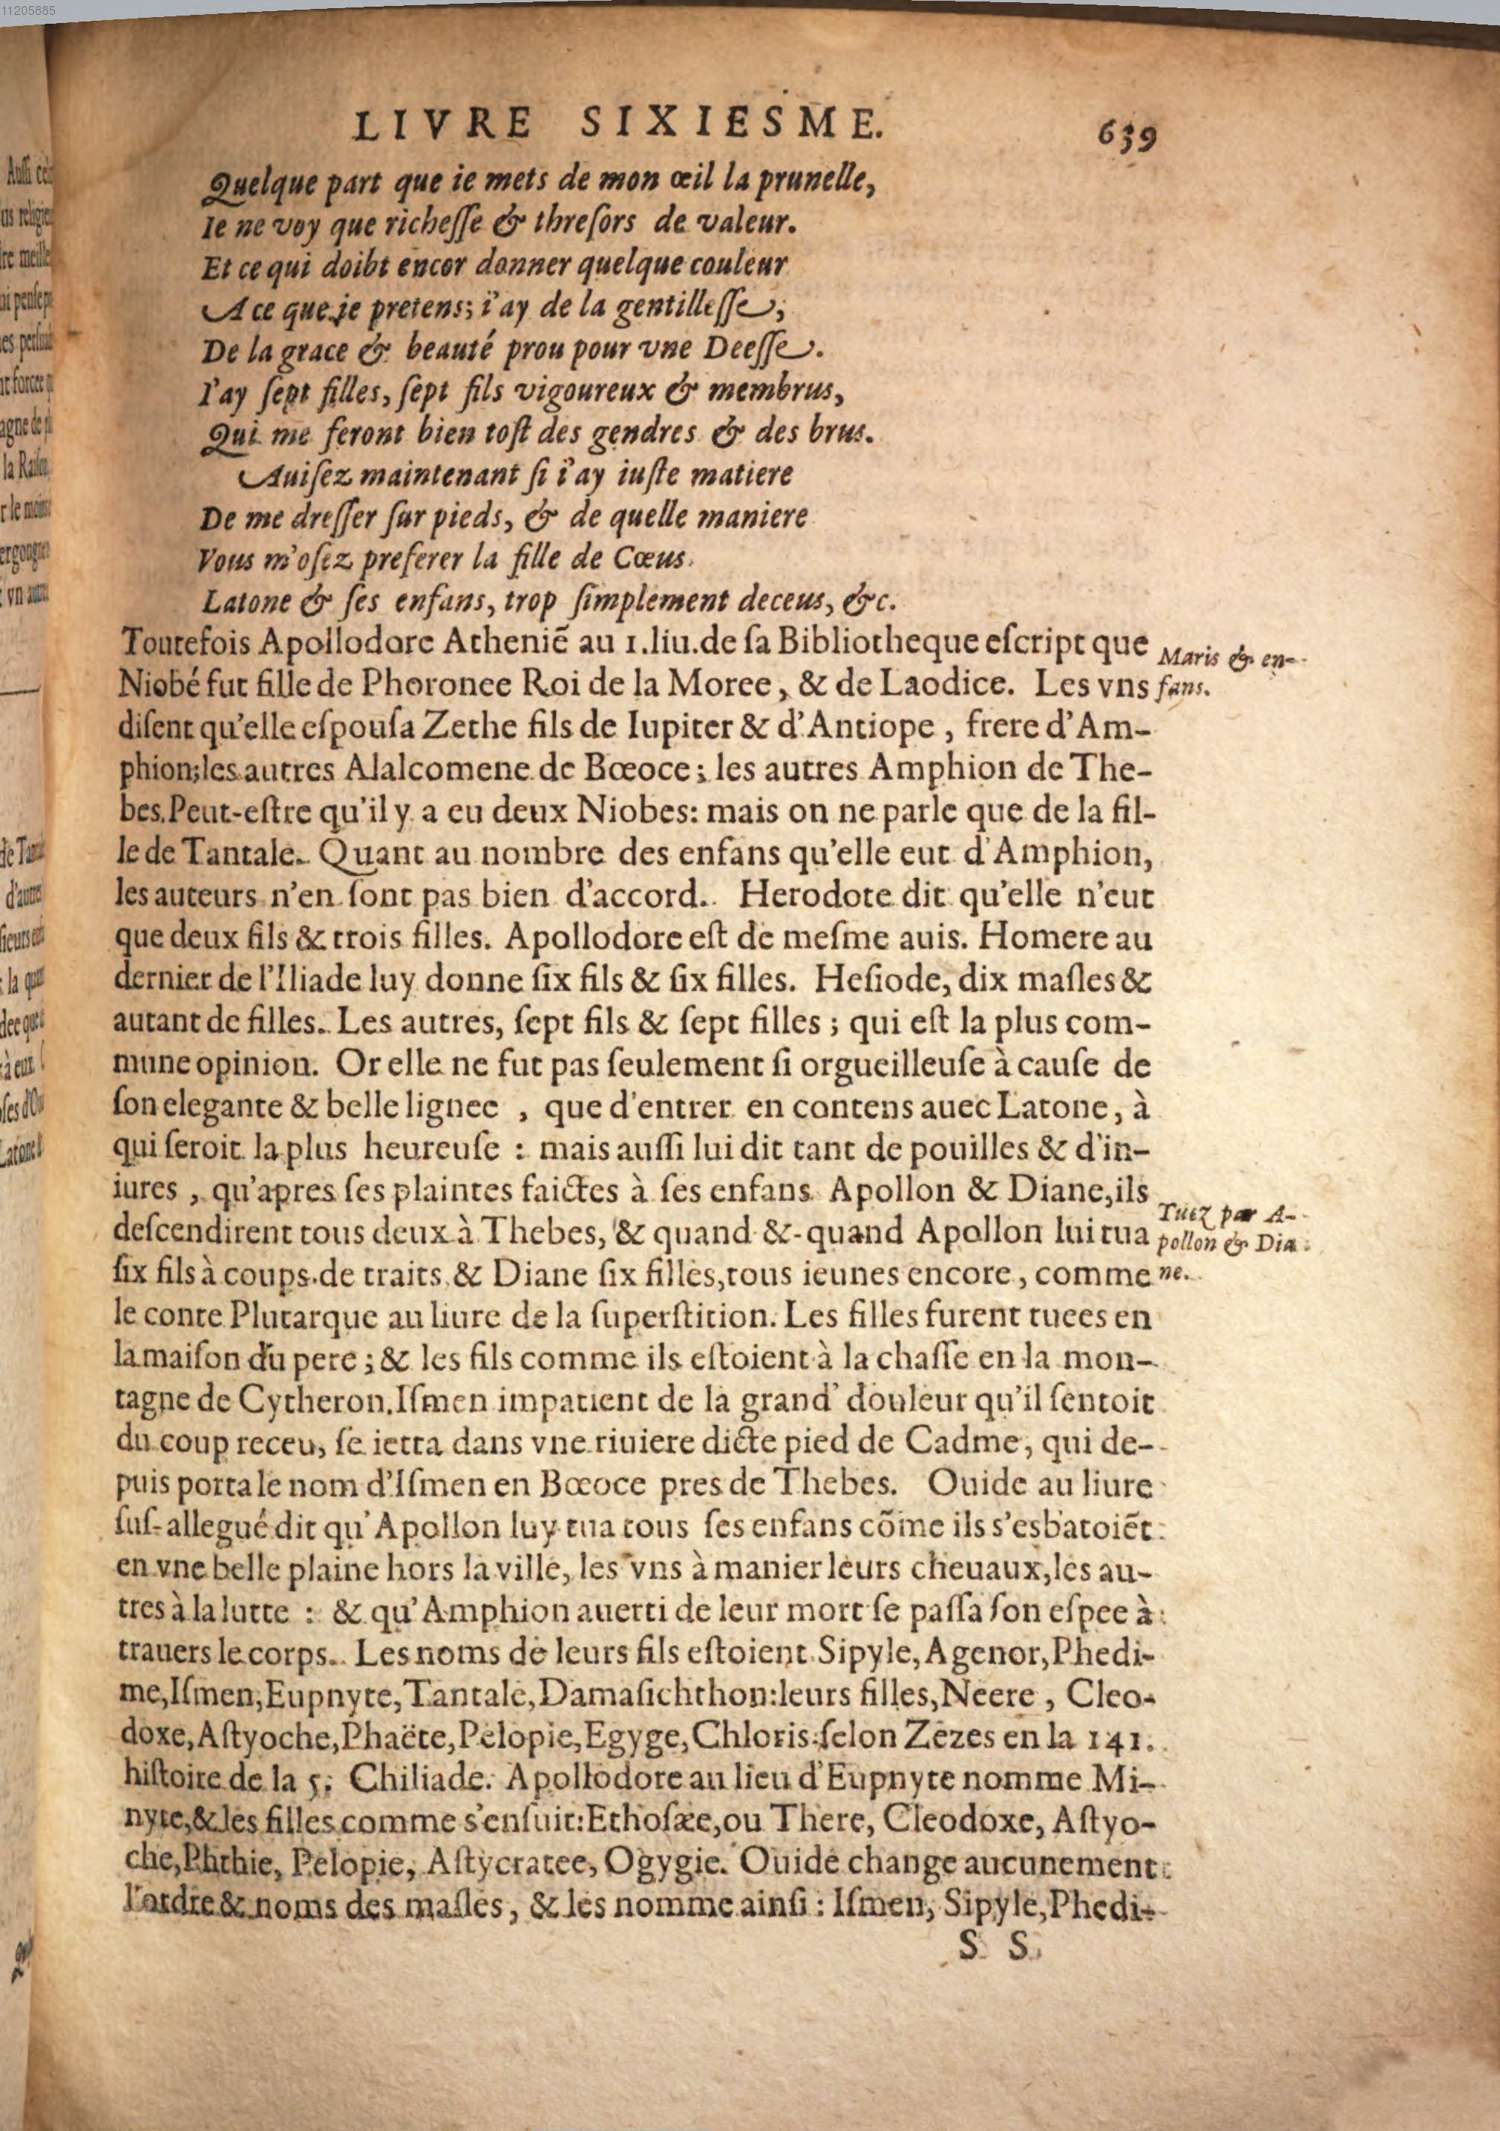 11205685
LIVRE SIXIESME. 639
Quelque part que ie mets de mon œil la prunelle,
Ie ne voy que richeſſe & threſors de valeur.
Et ce qui doibt encor donner quelque couleur
A ce que je pretens; i'ay de la gentilleſſe,
De la grace & beauté prou pour vne Deeſſe.
I'ay ſept filles, ſept fils vigoureux & membrus,
Qui me feront bien toſt des gendres & des brus.
Auiſez maintenant ſi i'ay iuſte matiere
De me dreſſer ſur pieds, & de quelle maniere
Vous m'oſez preferer la fille de Cœus.
Latone & ſes enfans, trop ſimplement deceus, &c.
Toutefois Apollodore Atheniẽ au 1. liu. de ſa Bibliotheque eſcript que
Niobé fut fille de Phoronee Roi de la Moree, & de Laodice. Les vns
diſent qu'elle eſpouſa Zethe fils de Iupiter & d'Antiope, frere d'Am-
phion; les autres Alalcomene de Bœoce; les autres Amphion de The-
bes. Peut-eſtre qu'il y a eu deux Niobes: mais on ne parle que de la fil-
le de Tantale. Quant au nombre des enfans qu'elle eut d'Amphion,
les auteurs n'en ſont pas bien d'accord. Herodote dit qu'elle n'eut
que deux fils & trois filles. Apollodore eſt de meſme auis. Homere au
dernier de l'Iliade luy donne ſix fils & ſix filles. Heſiode, dix maſles &
autant de filles. Les autres, ſept fils & ſept filles; qui eſt la plus com-
mune opinion. Or elle ne fut pas ſeulement ſi orgueilleuſe à cauſe de
ſon elegante & belle lignee, que d'entrer en contens auec Latone, à
qui ſeroit la plus heureuſe: mais auſſi lui dit tant de pouilles & d'in-
iures, qu'apres ſes plaintes faictes à ſes enfans Apollon & Diane, ils
deſcendirent tous deux à Thebes, & quand & quand Apollon lui tua
ſix fils à coups de traits & Diane ſix filles, tous ieunes encore, comme
le conte Plutarque au liure de la ſuperſtition. Les filles furent tuees en
la maiſon du pere; & les fils comme ils eſtoient à la chaſſe en la mon-
tagne de Cytheron. Iſmen impatient de la grand' douleur qu'il ſentoit
du coup receu, ſe ietta dans vne riuiere dicte pied de Cadme, qui de-
puis porta le nom d'Iſmen en Bœoce pres de Thebes. Ouide au liure
ſuſ-allegué dit qu'Apollon luy tua tous ſes enfans cõme ils s'esbatoiẽt
en vne belle plaine hors la ville, les vns à manier leurs cheuaux, les au-
tres à la lutte: & qu'Amphion auerti de leur mort ſe paſſa ſon eſpee à
trauers le corps. Les noms de leurs fils eſtoient Sipyle, Agenor, Phedi-
me, Iſmen, Eupnyte, Tantale, Damaſichthon: leurs filles, Neere, Cleo-
doxe, Aſtyoche, Phaëte, Pelopie, Egyge, Chloris: ſelon Zezes en la 141.
hiſtoire de la 5. Chiliade. Apollodore au lieu d'Eupnyte nomme Mi-
nyte, & les filles comme s'enſuit: Ethoſæe, ou There, Cleodoxe, Aſtyo-
che, Phthie, Pelopie, Aſtycratee, Ogygie. Ouide change aucunement
l'ordre & noms des maſles, & les nomme ainſi: Iſmen, Sipyle, Phedi-
S S
Maris & en-
fans.
Tuez par A-
pollon & Dia-
ne.